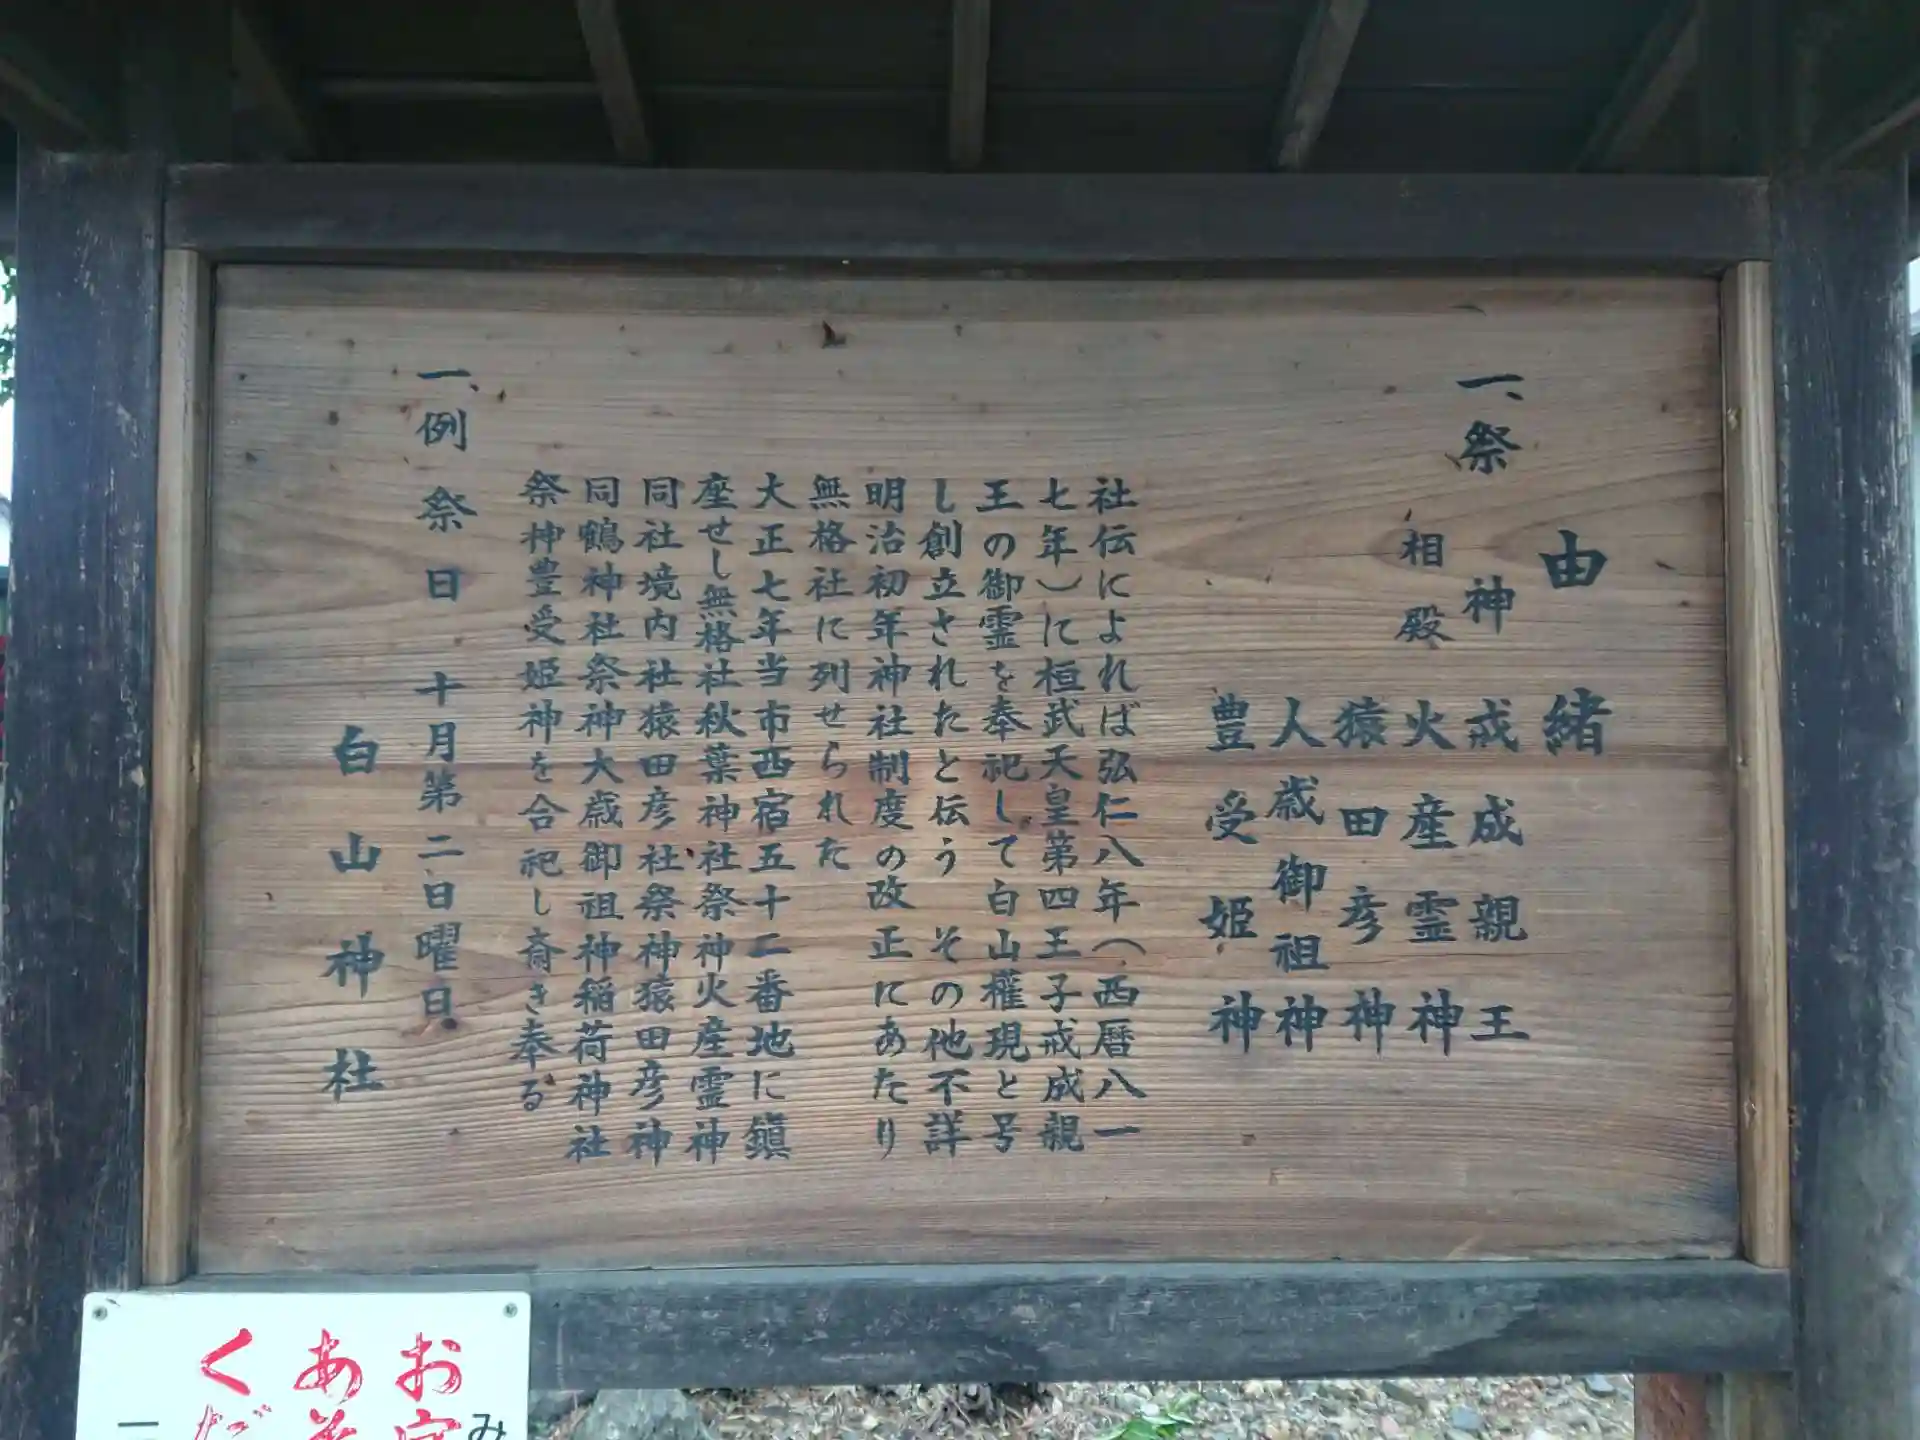 由緒
一、祭神 戒成親王
相殿 火産霊神
猿田彦神
大歳御祖神
豊受姫神
社伝によれば弘仁八年(西暦八一
七年)に桓武天皇第四王子戒成親
王の御霊を奉祀して白山権現と号
し創立されたと伝う その他不詳
明治初年神社制度の改正にあたり
無格社に列せられた
大正七年当市西宿五十二番地に鎮
座せし無格社秋葉神社祭神火産霊神
同社境内社猿田彦社祭神猿田彦神
同鶴神社祭神大歳御祖神稲荷神社
祭神豊受姫神を合祀し斎き奉る
一、例祭日 十月第二日曜日
白山神社
お
あ
くだ
み